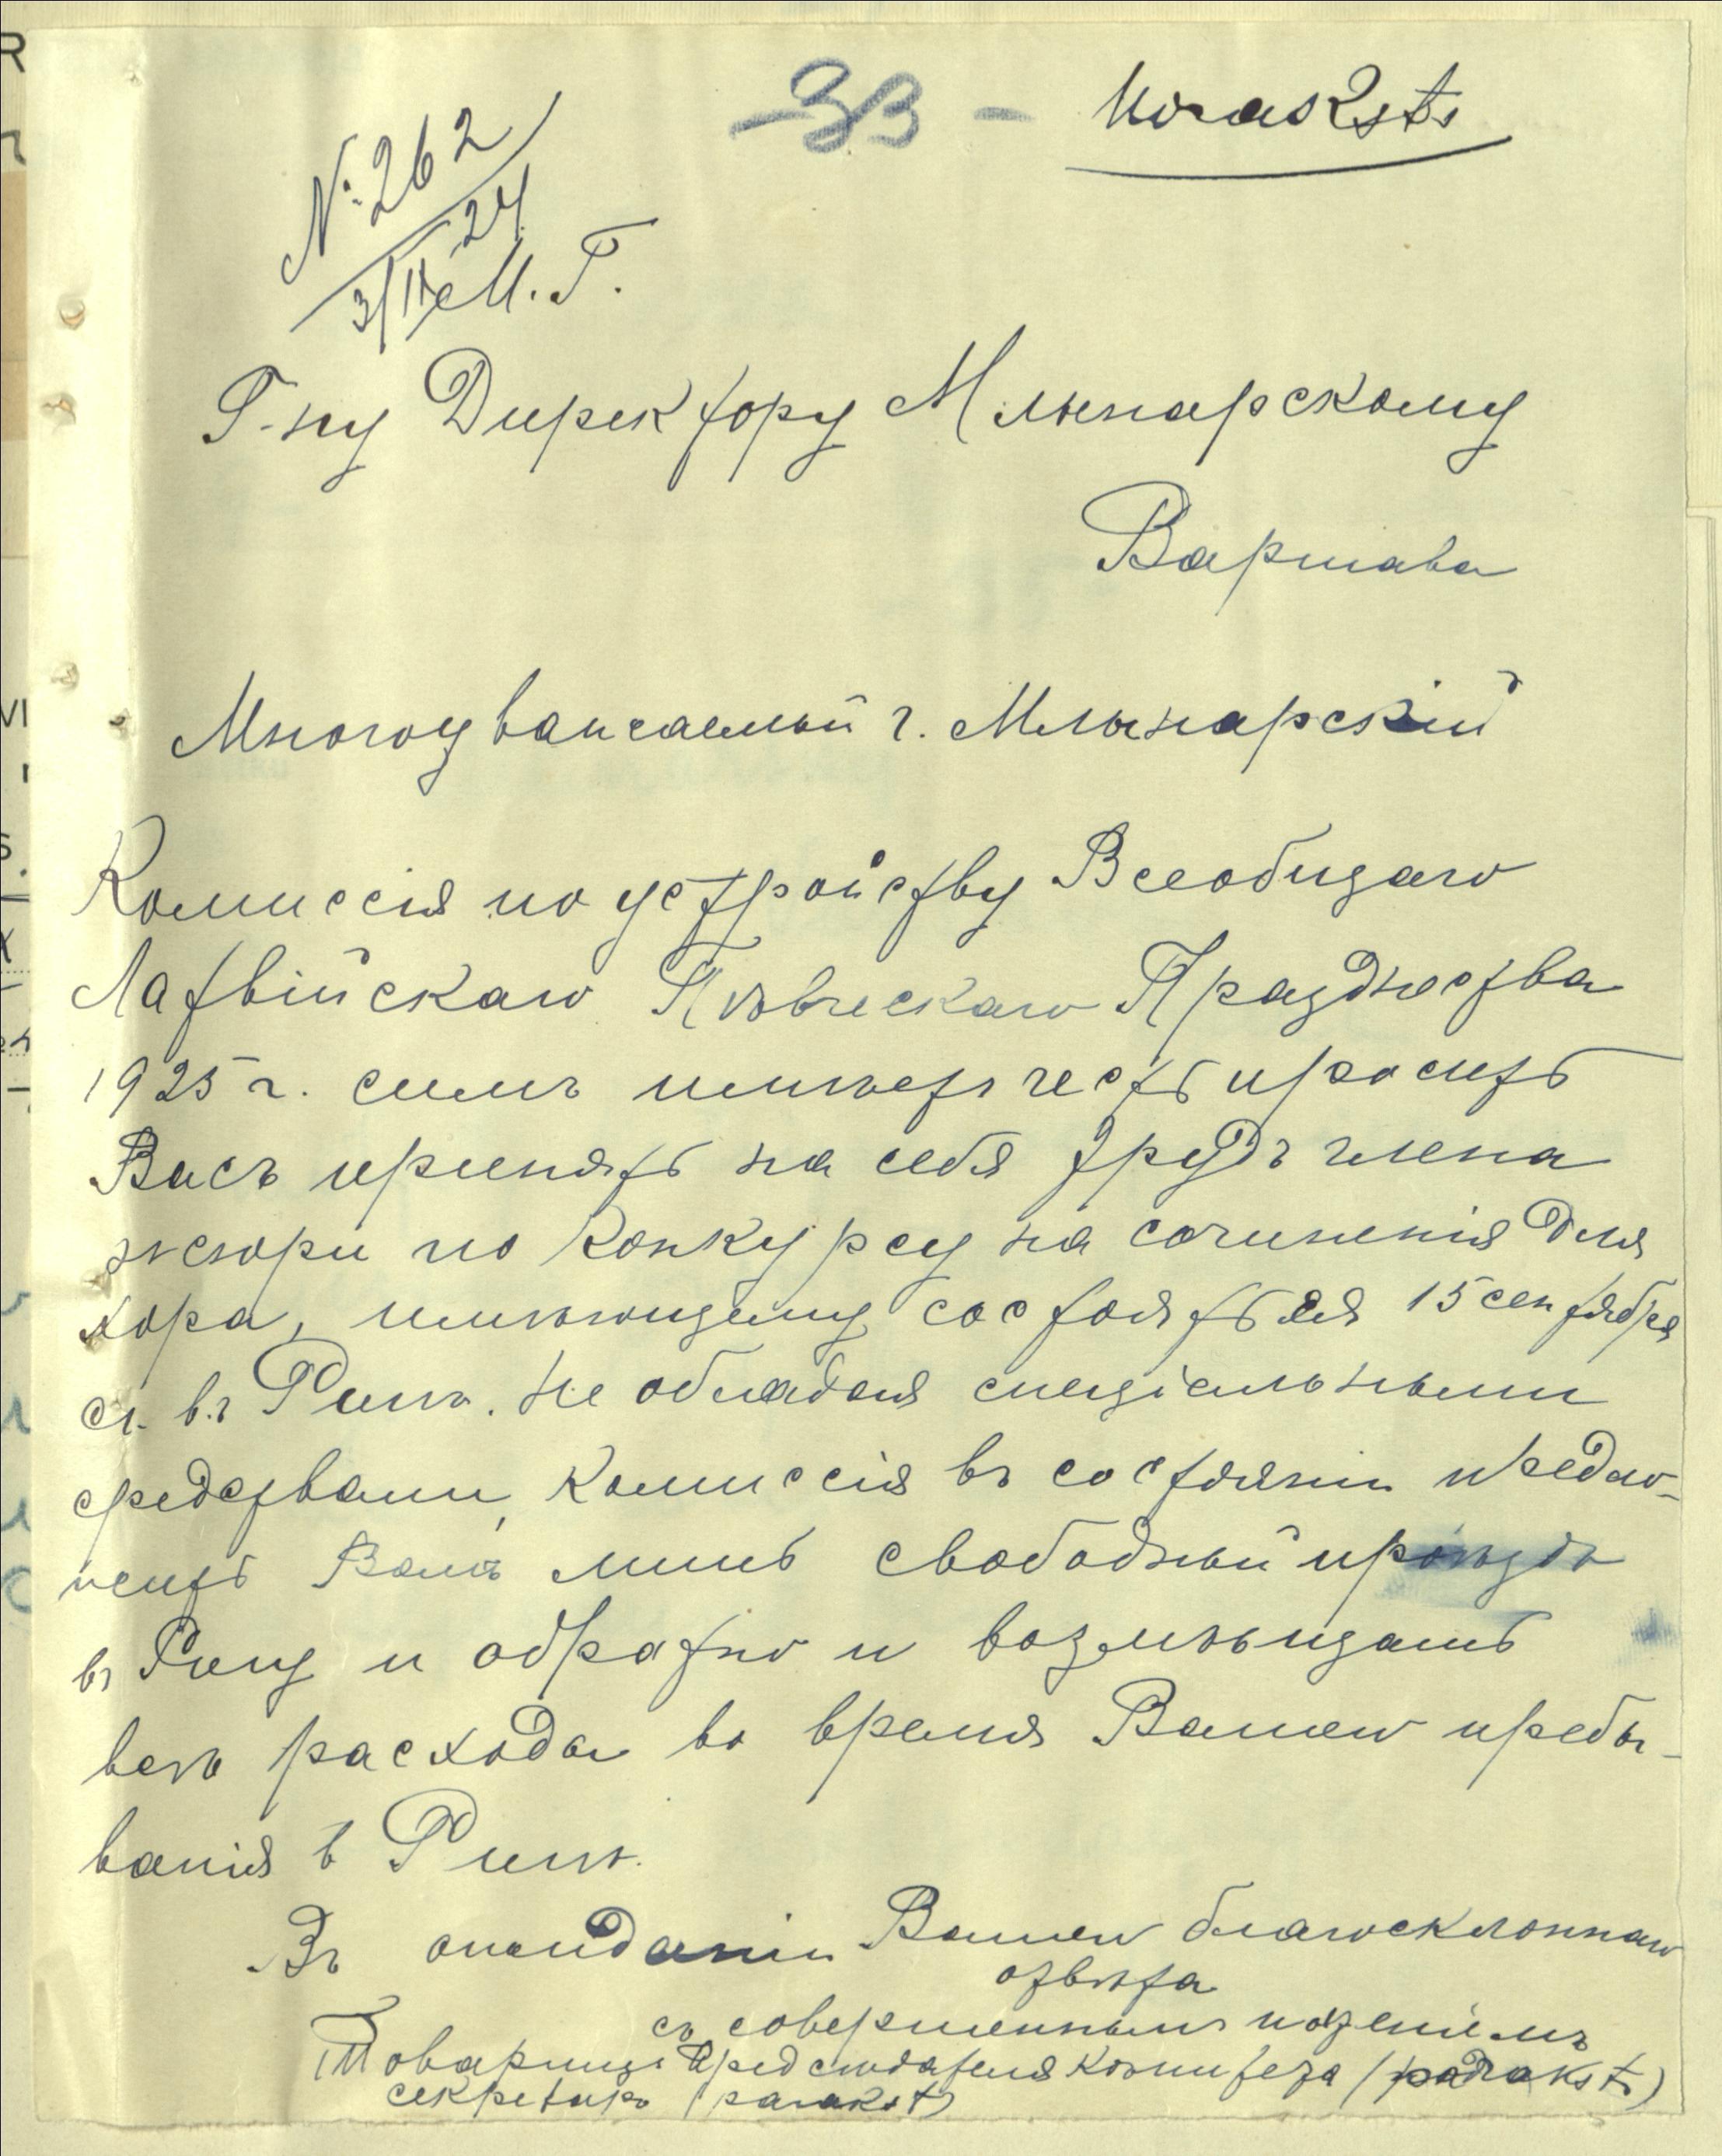 - 33 - Noraksts
№ 262
3/IX 24
М. Г.
Г-ну Директору Млынарскому
Варшава
Многоуважаемый г. Млынарскій
Комиссія по устройству Всеобщаго
Латвійскаго Пѣвческаго Празднества
1925 г. симъ имѣетъ честь просить
Васъ принять на себя трудъ члена
жюри по конкурсу на сочиненія для
хора, имѣющему состояться 15 сентября
с.г. въ Ригѣ. Не обладая спеціальными
средствами, Комиссія въ состояніи предло-
жить Вамъ лишь свободный проѣздъ
въ Ригу и обратно и возмѣщать
всѣ расходы во время Вашего пребы-
ванія в Ригѣ.
Въ ожиданіи Вашего благосклоннаго
отвѣта
съ совершеннымъ почтеніемъ
Товарищъ Предсѣдателя Комитета (paraksts)
секретарь (parakst)